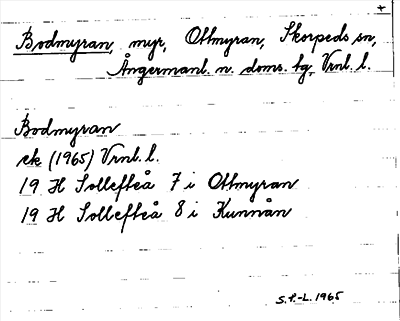 +
Bodmyran, myr, Ottmyran, Skorpeds sn,
Ångermanl. n. doms. hg, Vrnl. l.
Bodmyran
ek (1965) Vrnl. l.
19 H Sollefteå 7 i Ottmyran
19 H Sollefteå 8 i Kunnån
S.P.-L. 1965